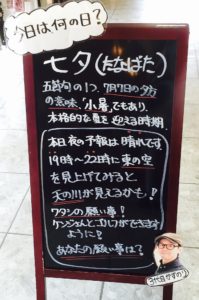 今日は何の日?
七夕(たなばた)
五節句の1つ、7月7日の夕方
の意味、“小暑”でもあり、
本格的な夏を迎える時期。
本日夜の予報は晴れです
19時〜22時に東の空
を見上げてみると
天の川が見えるかも!
ワタシの願い事!
ケンジさんとゴルフができます
ように!
あなたの願い事は?
3代目かずのり